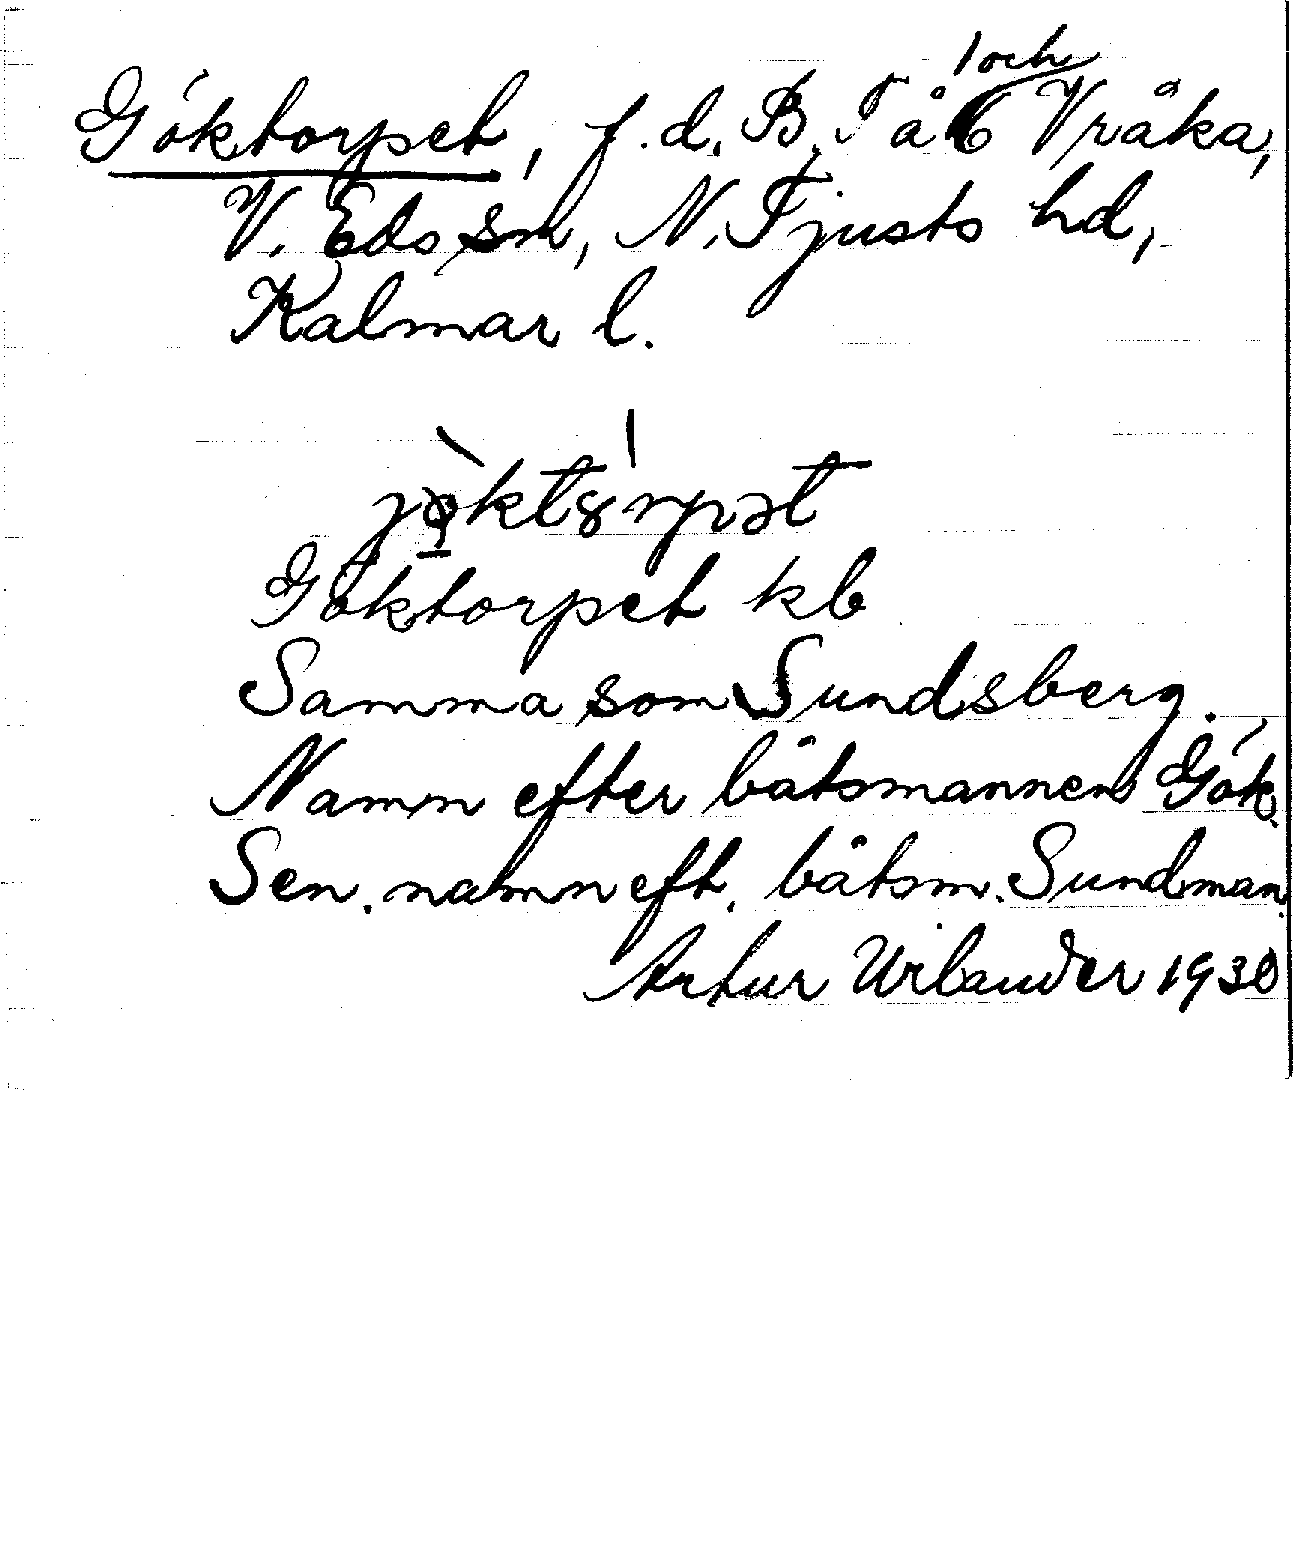 1 och
Göktorpet, f.d. B.T å 6 Vråka,
V. Eds sn, N. Tjusts hd,
Kalmar l.
jøktȣrpət
Göktorpet kb
Samma som Sundsberg.
Namn efter båtsmannen Gök.
Sen. namn eft. båtsm. Sundman.
Artur Urlander 1930